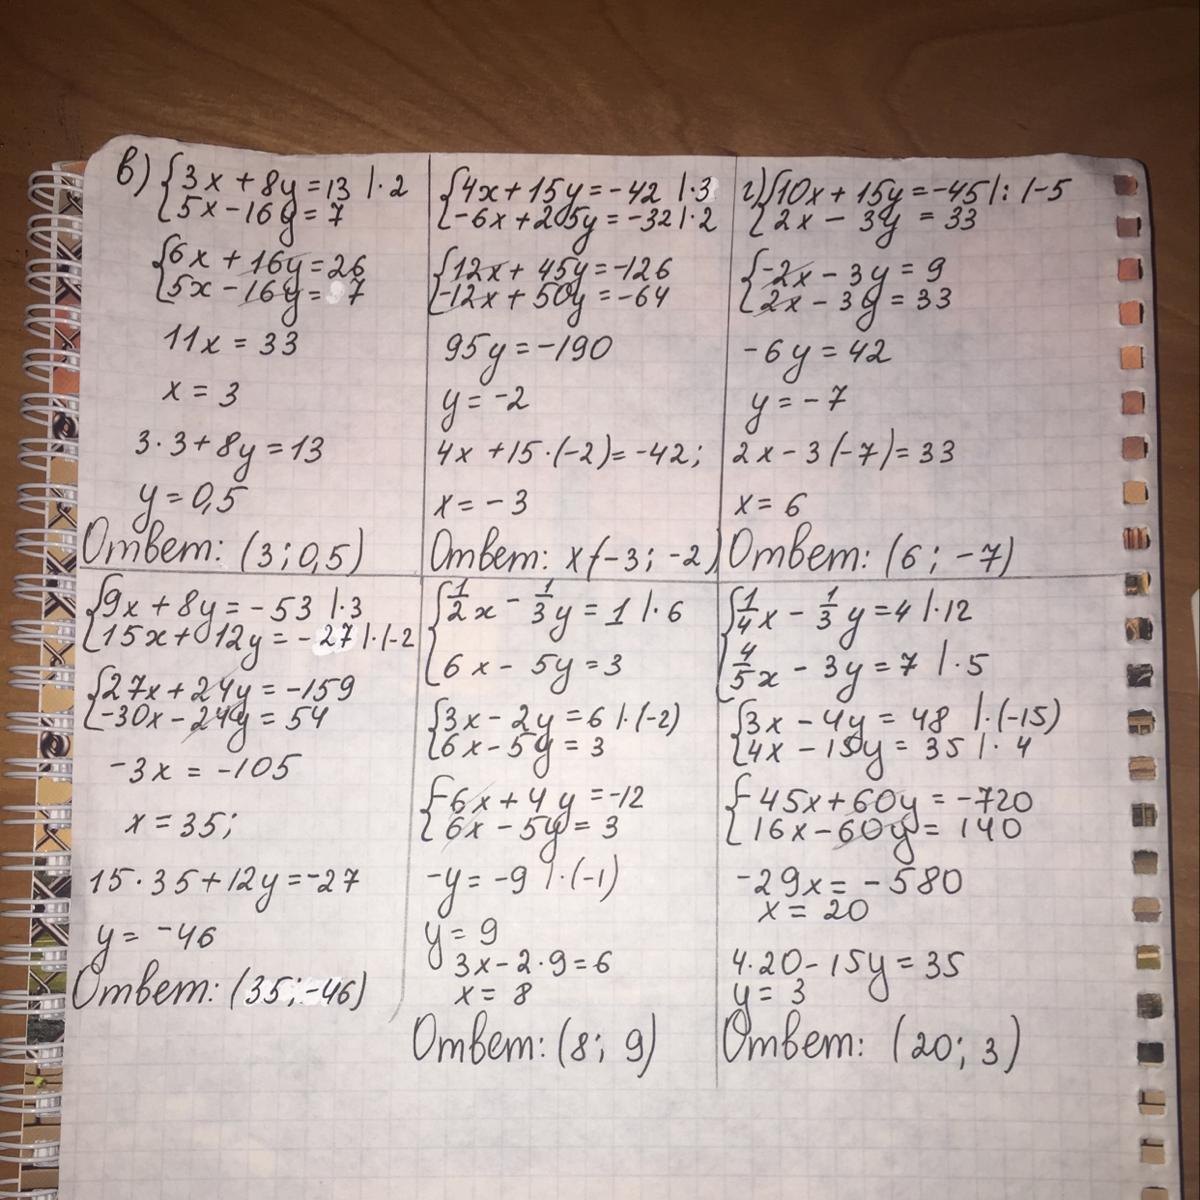 в) {3x + 8y = 13 |·2
{5x - 16y = 7
{6x + 16y = 26
{5x - 16y = 7
11x = 33
x = 3
3·3 + 8y = 13
y = 0,5
Ответ: (3; 0,5)
{4x + 15y = -42 |·3
{-6x + 25y = -32 |·2
{12x + 45y = -126
{-12x + 50y = -64
95y = -190
y = -2
4x + 15·(-2) = -42;
x = -3
Ответ: x(-3; -2)
г) {10x + 15y = -45 |: (-5
{2x - 3y = 33
{-2x - 3y = 9
{2x - 3y = 33
-6y = 42
y = -7
2x - 3(-7) = 33
x = 6
Ответ: (6; -7)
{9x + 8y = -53 |·3
{15x + 12y = -27 |·(-2
{27x + 24y = -159
{-30x - 24y = 54
-3x = -105
x = 35;
15·35 + 12y = -27
y = -46
Ответ: (35; -46)
{1/2x - 1/3y = 1 |·6
{6x - 5y = 3
{3x - 2y = 6 |·(-2)
{6x - 5y = 3
{-6x + 4y = -12
{6x - 5y = 3
-y = -9 |·(-1)
y = 9
3x - 2·9 = 6
x = 8
Ответ: (8; 9)
{1/4x - 1/3y = 4 |·12
{4/5x - 3y = 7 |·5
{3x - 4y = 48 |·(-15)
{4x - 15y = 35 |·4
{-45x + 60y = -720
{16x - 60y = 140
-29x = -580
x = 20
4·20 - 15y = 35
y = 3
Ответ: (20; 3)